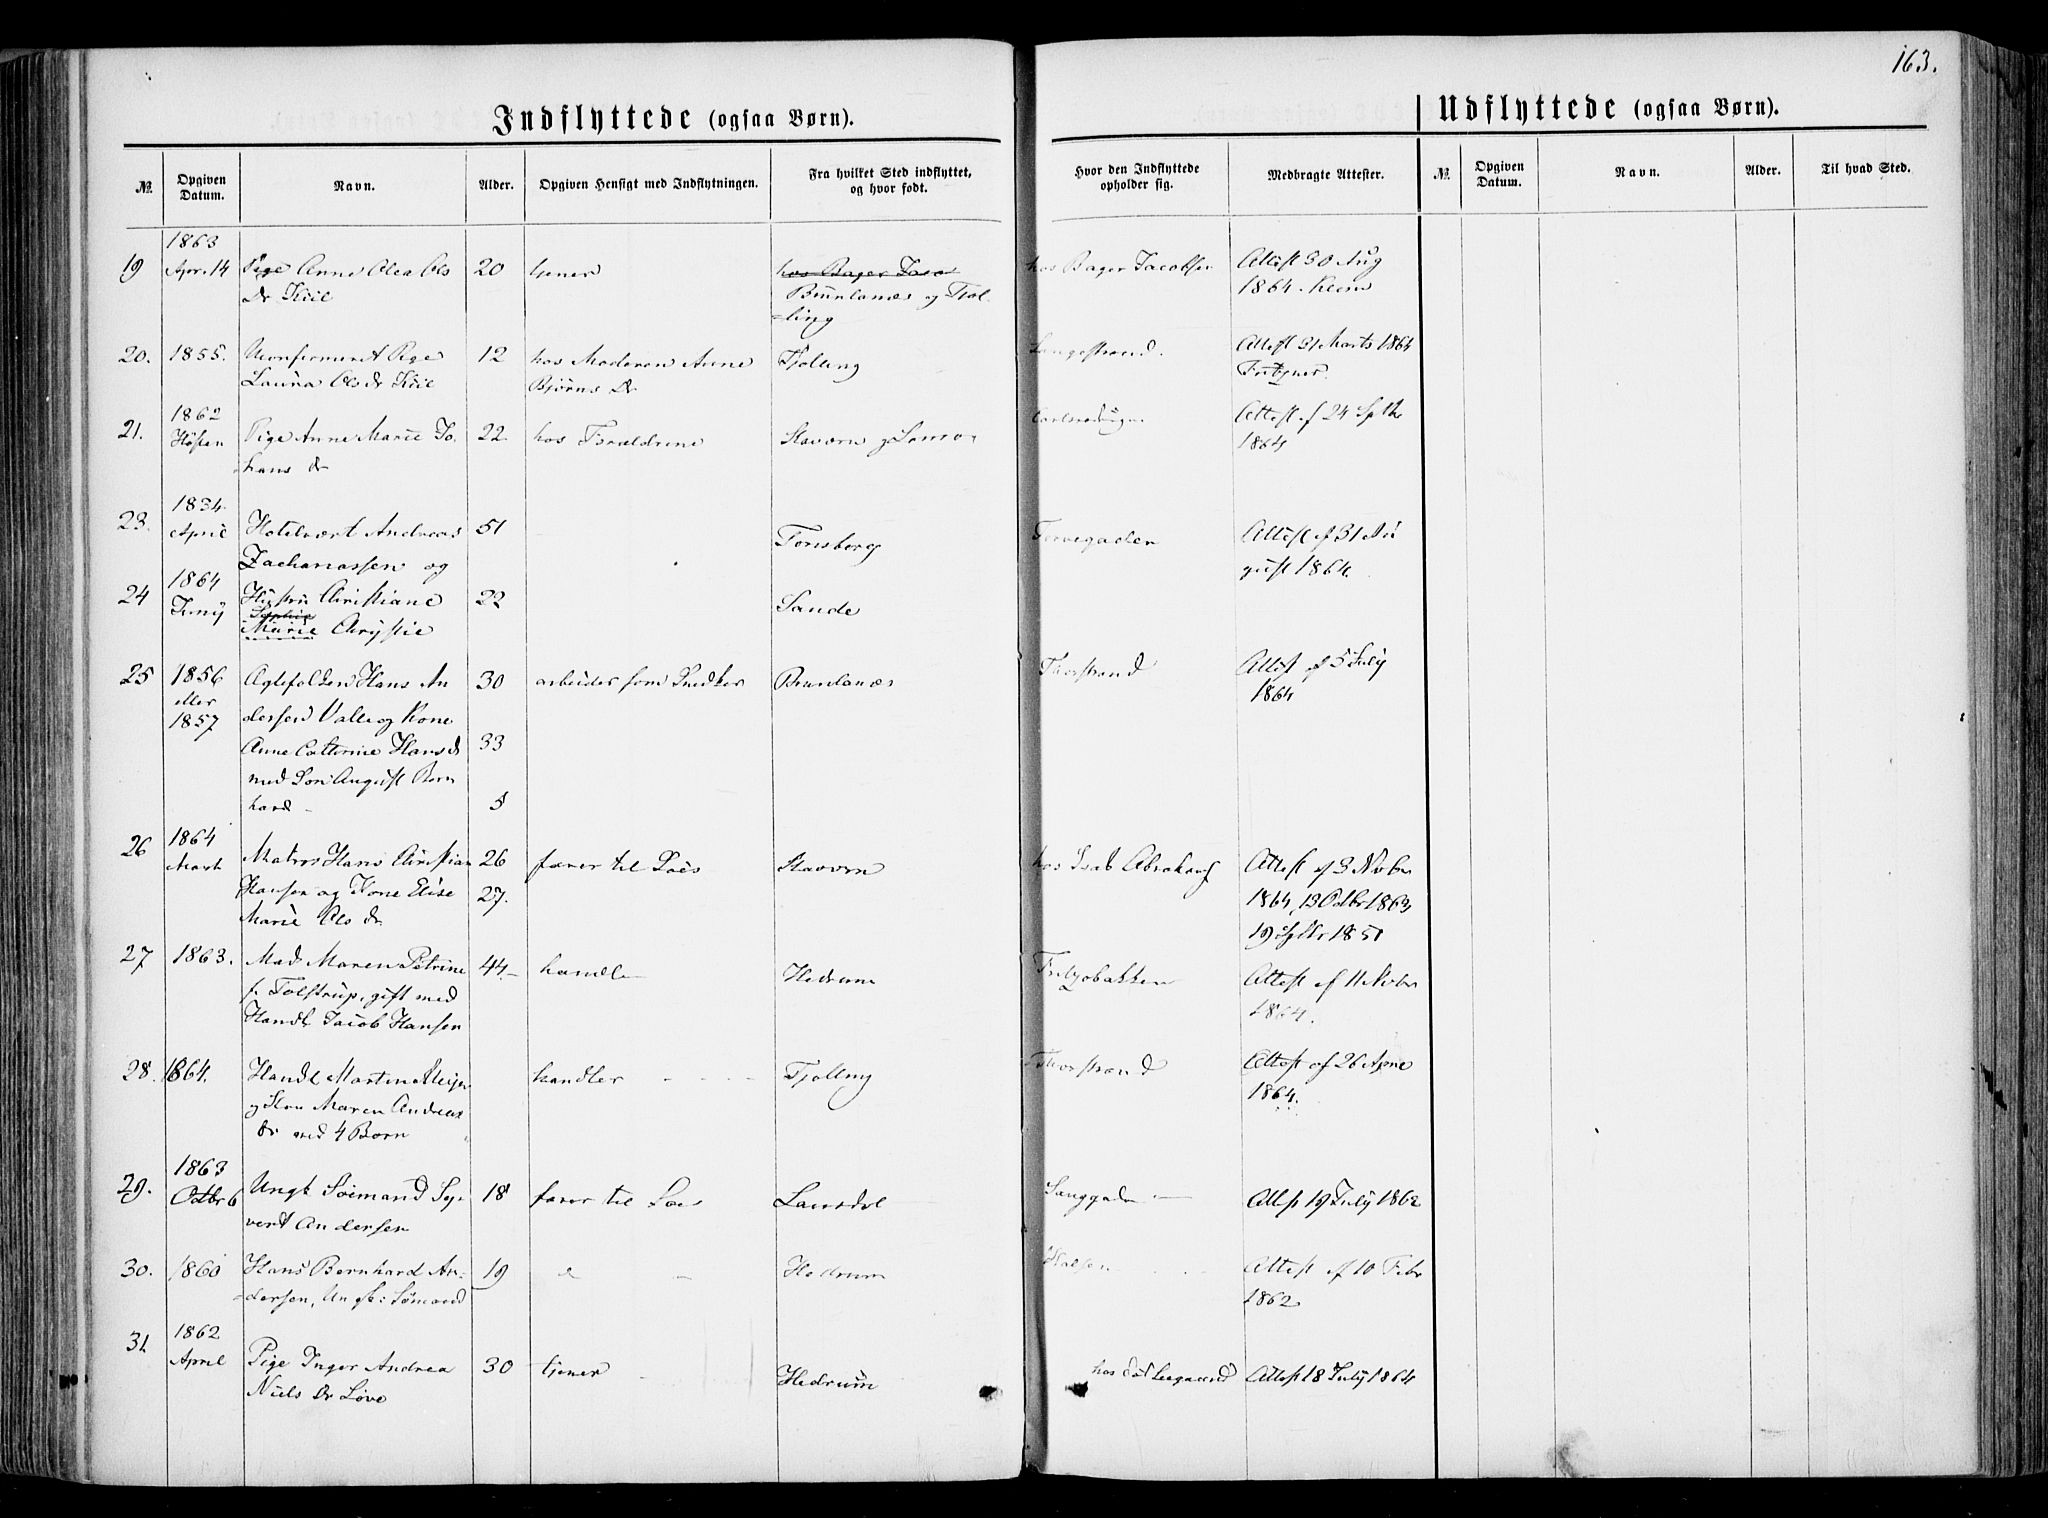 163.
Indflyttede (ogsaa Børn).
Udflyttede (ogsaa Børn).
№ Opgiven Datum. Navn. Alder. Opgiven Hensigt med Indflytningen. Fra hvilket Sted indflyttet, og hvor født. Hvor den Indflyttede opholder sig. Medbragte Attester. № Opgiven Datum. Navn. Alder. Til hvad Sted.
1863
19 Apr. 14 Pige Anne Olea Ols 20 tjener hos Bager Jaco hos Bager Jacobsen Attest 30 Aug
Dr Kiil Brunlanæs og Tjol- 1864.
=ling
20. 1855. Uconfirmeret Pige 12 hos Moderen Anne Tjolling Langestrand. Attest 31 Marts 1864
Laura Ols dr Kiil Bjørns Dr
1862
21. Høsten Pige Anne Marie Jo- 22. hos Forældrene Stavern Attest af 24 Sptbr
hans dr 1864
1834.
23. April Hotelvært Andreas 51 Tonsberg Torvegaden Attest af 31 Au
Zachariassen og gust 1864.
1864
24 Juny Hustru Christiane 22 Sande
Sophie
Marie Chrystie
25 1856 Ægtefolken Hans An 30 arbeider som Snedker Brunlanæs Thorstrand Attest af 5 July
eller dersen Valle og Kone 1864
1857
Anne Cathrine Hans dr 33
med Son August Bern
hard - 5
26 1864 Matros Hans Christian 26 farer til Søes Stavern hos Isak Abrahams Attest af 3 Novbr
Marts Hansen og Kone Elise 27. 1864, 13 Octbr 1863
Marie Ols dr 19 Sptbr 1851
27 1863. Mad Maren Petrine 44.- handle Hedrum Fritzøbakken Attest af 11 Novbr
f. Tolstrup, gift med 1864.
Handl Jacob Hansen
28. 1864. Handl Martin Meyer handler Tjolling Thorstrand Attest af 26 April
og Kone Maren Andreas 1864.
dr med 4 Born
1863
29. Octbr 6 Ungk Sømand Sy- 18 farer til Søes Laurdal Langgaden Attest 19 July 1862
vert Andersen
30. 1860 Hans Bernhard An- 19 d - Hedrum Halsen Attest af 10 Febr
=dersen, Ungk: Sømand 1862
1862
31. April Pige Inger Andrea 30 tjener Hedrum hos Attest 18 July 1864
Niels Dr Løve